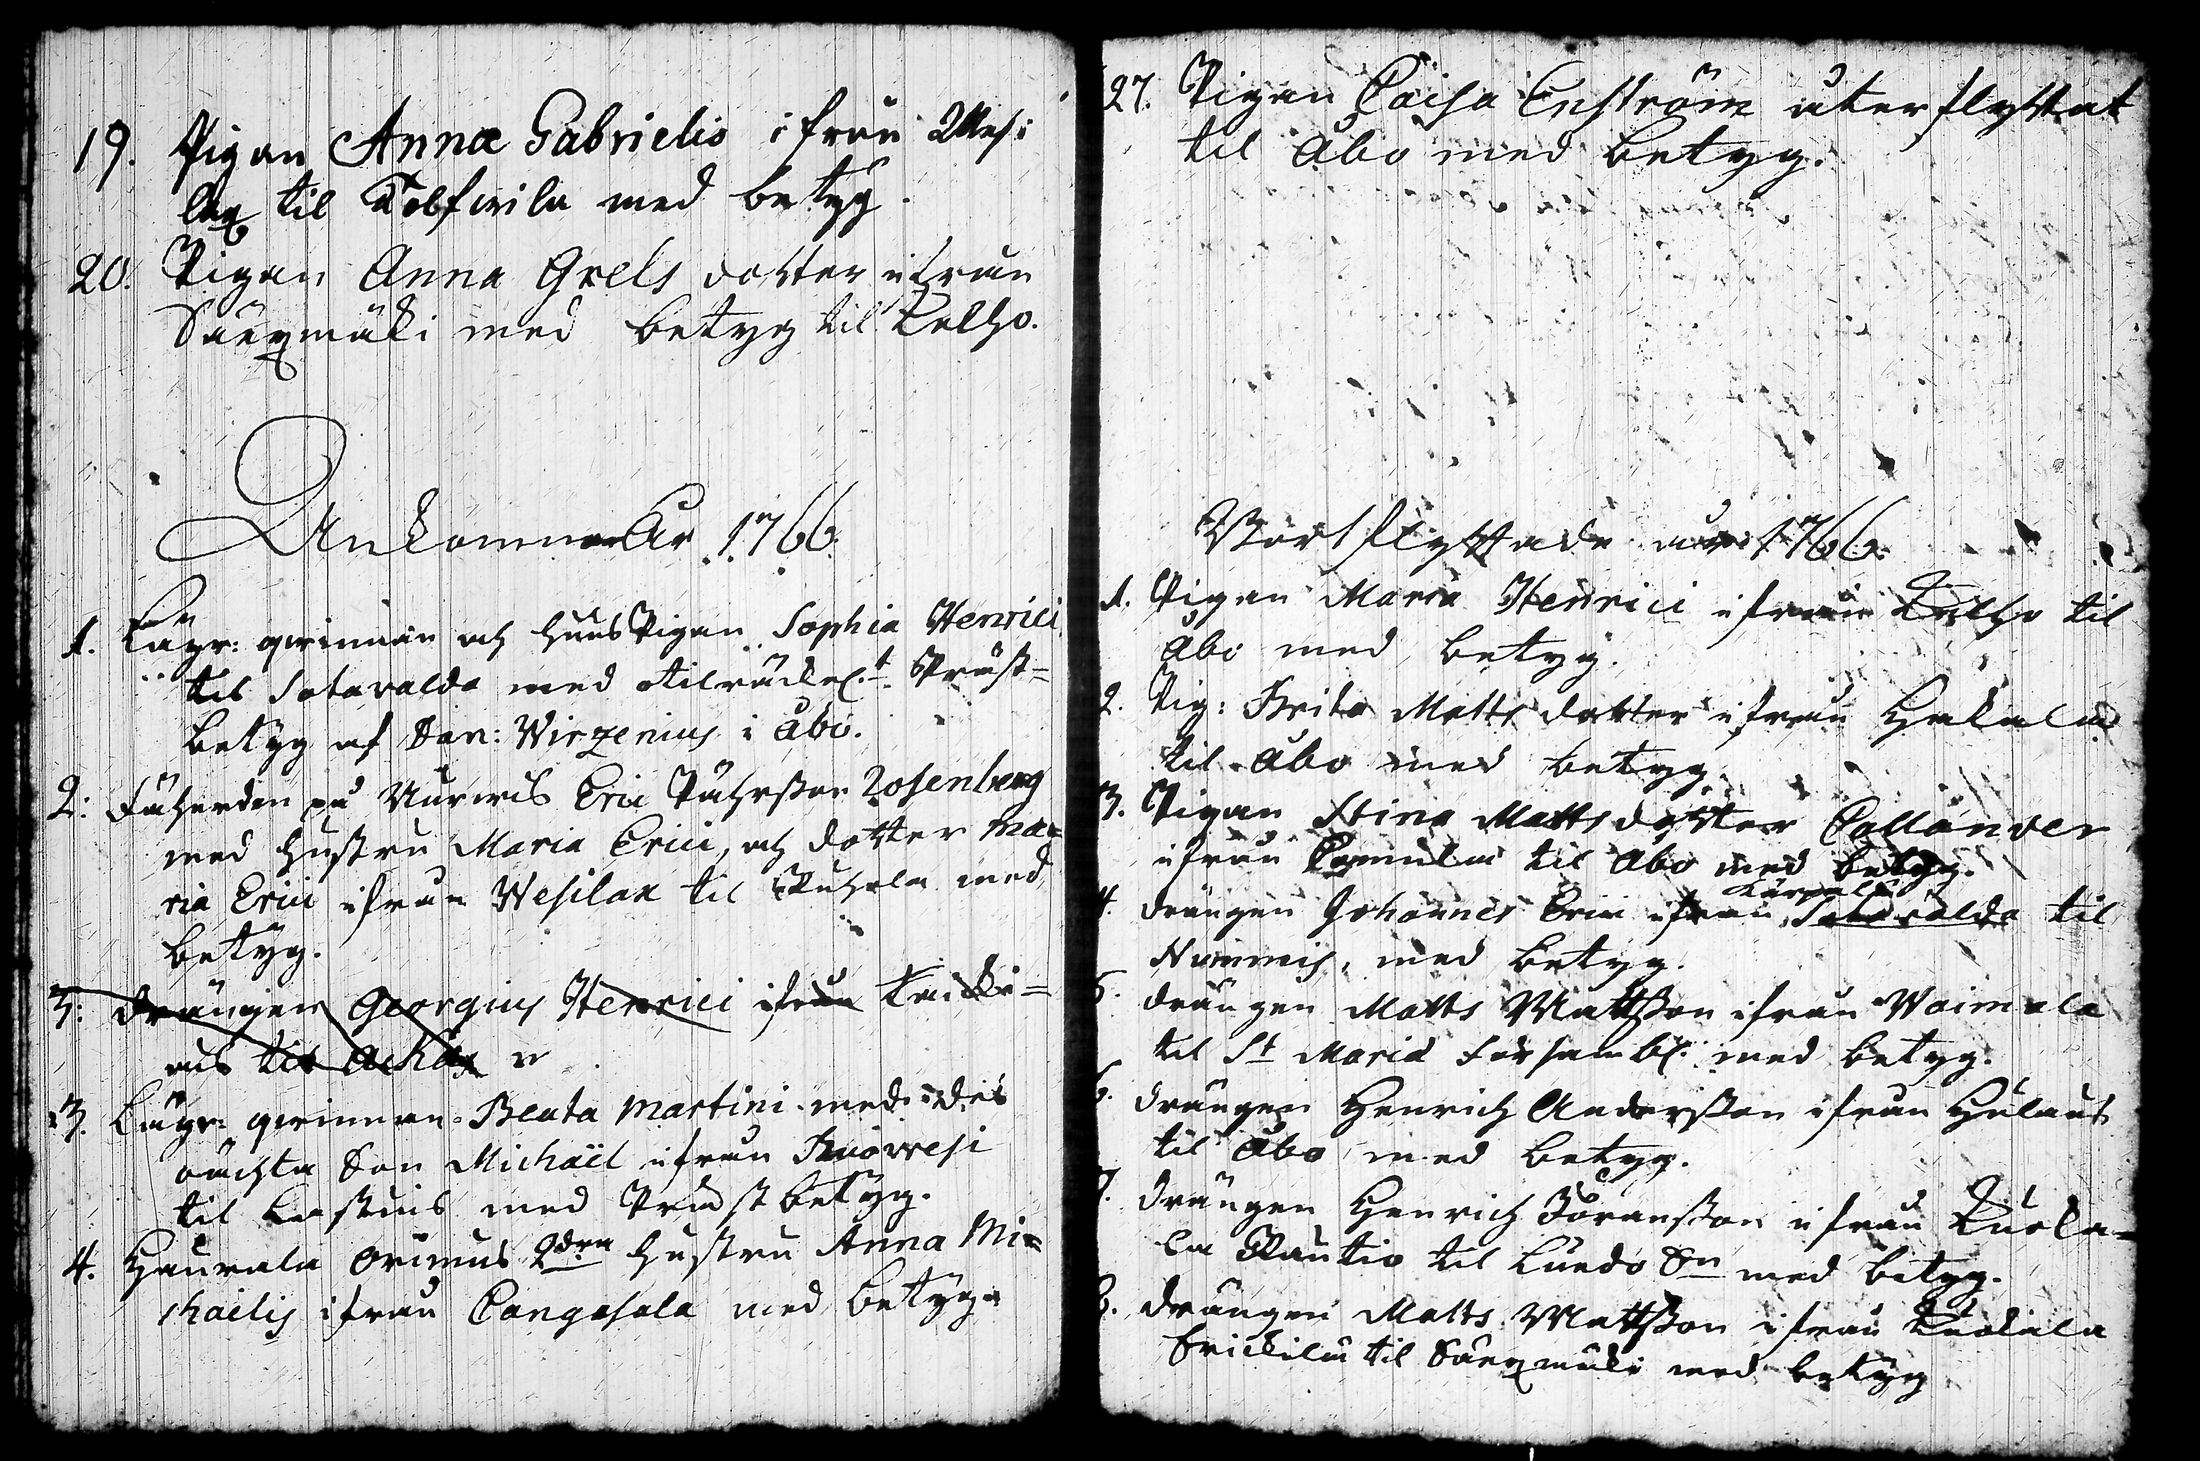 19. Pigan Anna Gabrielis ifrån Wesi
lax til Tolfwila med betyg.
20. Pigan Anna Grels dotter ifrån
Säexmäki med betyg til Kelho.
Ankomne År 1766.
1. Inhys: qwinnan och huus Pigan Sophia Henrici
til Sotavalda med otilräckel.t Präst=
betyg af Sac: Wirzenius i Åbo.
2: Fäherden på Nurmis Eric Påhrsson Rosenberg
med hustru Maria Erici, och dotter Ma=
ria Erici ifrån Wesilax til med
betyg.
3: Drängen Georgius Henrici ifrån
til
3. Inhys: qwinnan Beata Martini med des
oächta Son Michaël ifrån Ruovvesi
til med Präst betyg.
4. Haurala Grimus 2dra hustru Anna Mi=
chaelis ifrån Cangasala med betyg
27. Pigan Caisa Enström återflyttat
til Åbo med betyg.
Bortflyttade år 1766.
1. Pigan Maria Henrici ifrån Kelho til
Åbo med betyg.
2. Pig: Brita Matts dotter ifrån Hakala
til Åbo med betyg.
3. Pigan Stina Matts dotter Callander
ifrån til Åbo med betyg.
Kärpälä
4. Drängen Johannes Erici ifrån Sotavalda til
Nummis, med betyg.
5. Drängen Matts Mattsson ifrån Woimala
til St Mariæ Försambl: med betyg.
6. Drängen Henrich Andersson ifrån Hulaus
til Åbo med betyg.
7. Drängen Henrich Göransson ifrån Kuola=
la Rautio til Lundo Sn med betyg.
8. Drängen Matts Mattsson ifrån Kuokala
Erickilä til Säexmäki med betyg